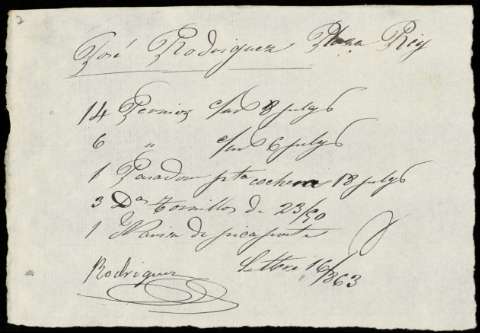 José Rodriguez Plaza Rey
14 Pernios c/ar 8 pulgs
6 " c/ar 6 pulgs
1 Pasador pta cochera 18 pulgs
3 Das tornillos de 23/30
1 de picaporte
Rodriguez Stbre 16/863